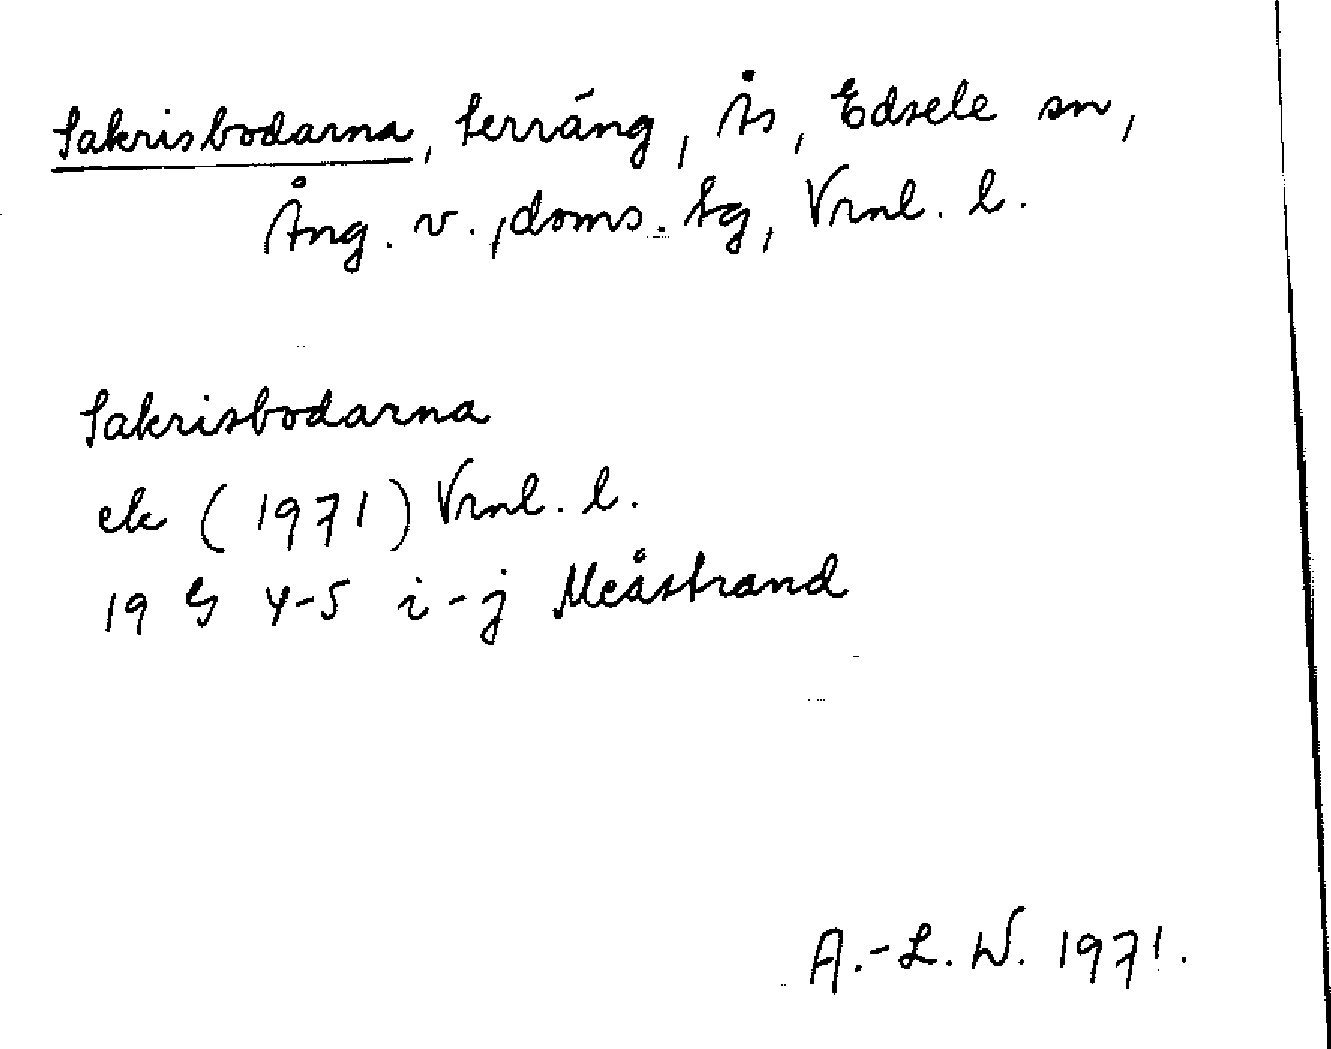 Sakrisbodarna, terräng, Ås, Edsele sn,
Ång. v., doms. tg, Vrnl. l.
Sakrisbodarna
ek (1971) Vrnl. l.
19 G 4-5 i-j Meåstrand
A.-L. W. 1971.